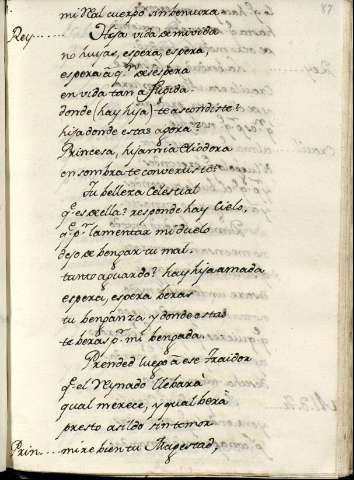 mi Real cuerpo sin bentura
Rey...... Hija vida de mi vida
no huyas, espera, espera,
espera â q.n desespera
en vida tan afligida
donde (hay hija) te ascondiste?
hija donde estas agora?
Princesa, hija mia Cliodora
en sombra te convertiste?
Tu belleza Celestial
q.e es de ella? responde hay Cielo,
q.e p.r lamentar mi duelo
dejo de bengar tu mal.
tanto aguardo? hay hija amada
espera, espera beras
tu benganza, y donde estas
te beras p.r mi bengada.
Prended luego â ese Traidor
q.e el Reynado llebarà
qual merece, y qual berà
presto asildo sin temor
Prin.... mire bien tu Magestad,